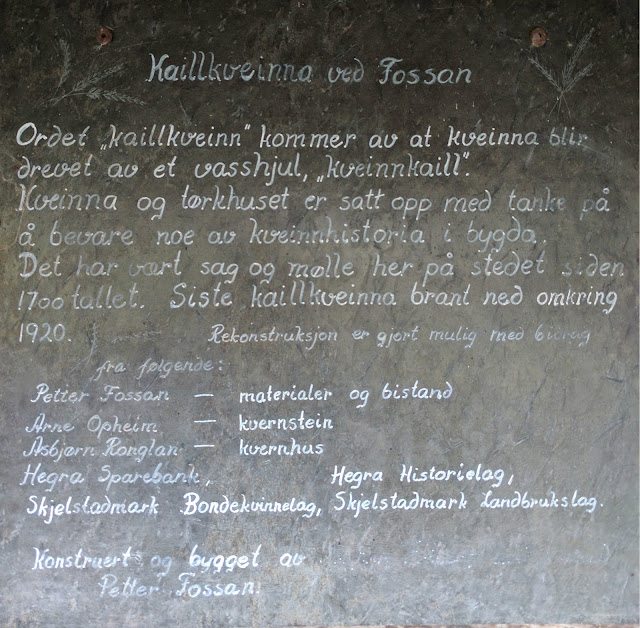 Kaillkveinna ved Fossan
Ordet „kaillkveinn" kommer av at kveinna blir
drevet av et vasshjul, „kveinnkaill".
Kveinna og tørkhuset er satt opp med tanke på
å bevare noe av kveinnhistoria i bygda.
Det har vært sag og mølle her på stedet siden
1700 tallet. Siste kaillkveinna brant ned omkring
1920. Rekonstruksjon er gjort mulig med bidrag
fra følgende:
Petter Fossan — materialer og bistand
Arne Opheim — kvernstein
Asbjørn Ronglan — kvernhus
Hegra Sparebank, Hegra Historielag,
Skjelstadmark Bondekvinnelag, Skjelstadmark Landbrukslag.
Konstruert og bygget av
Petter Fossan.